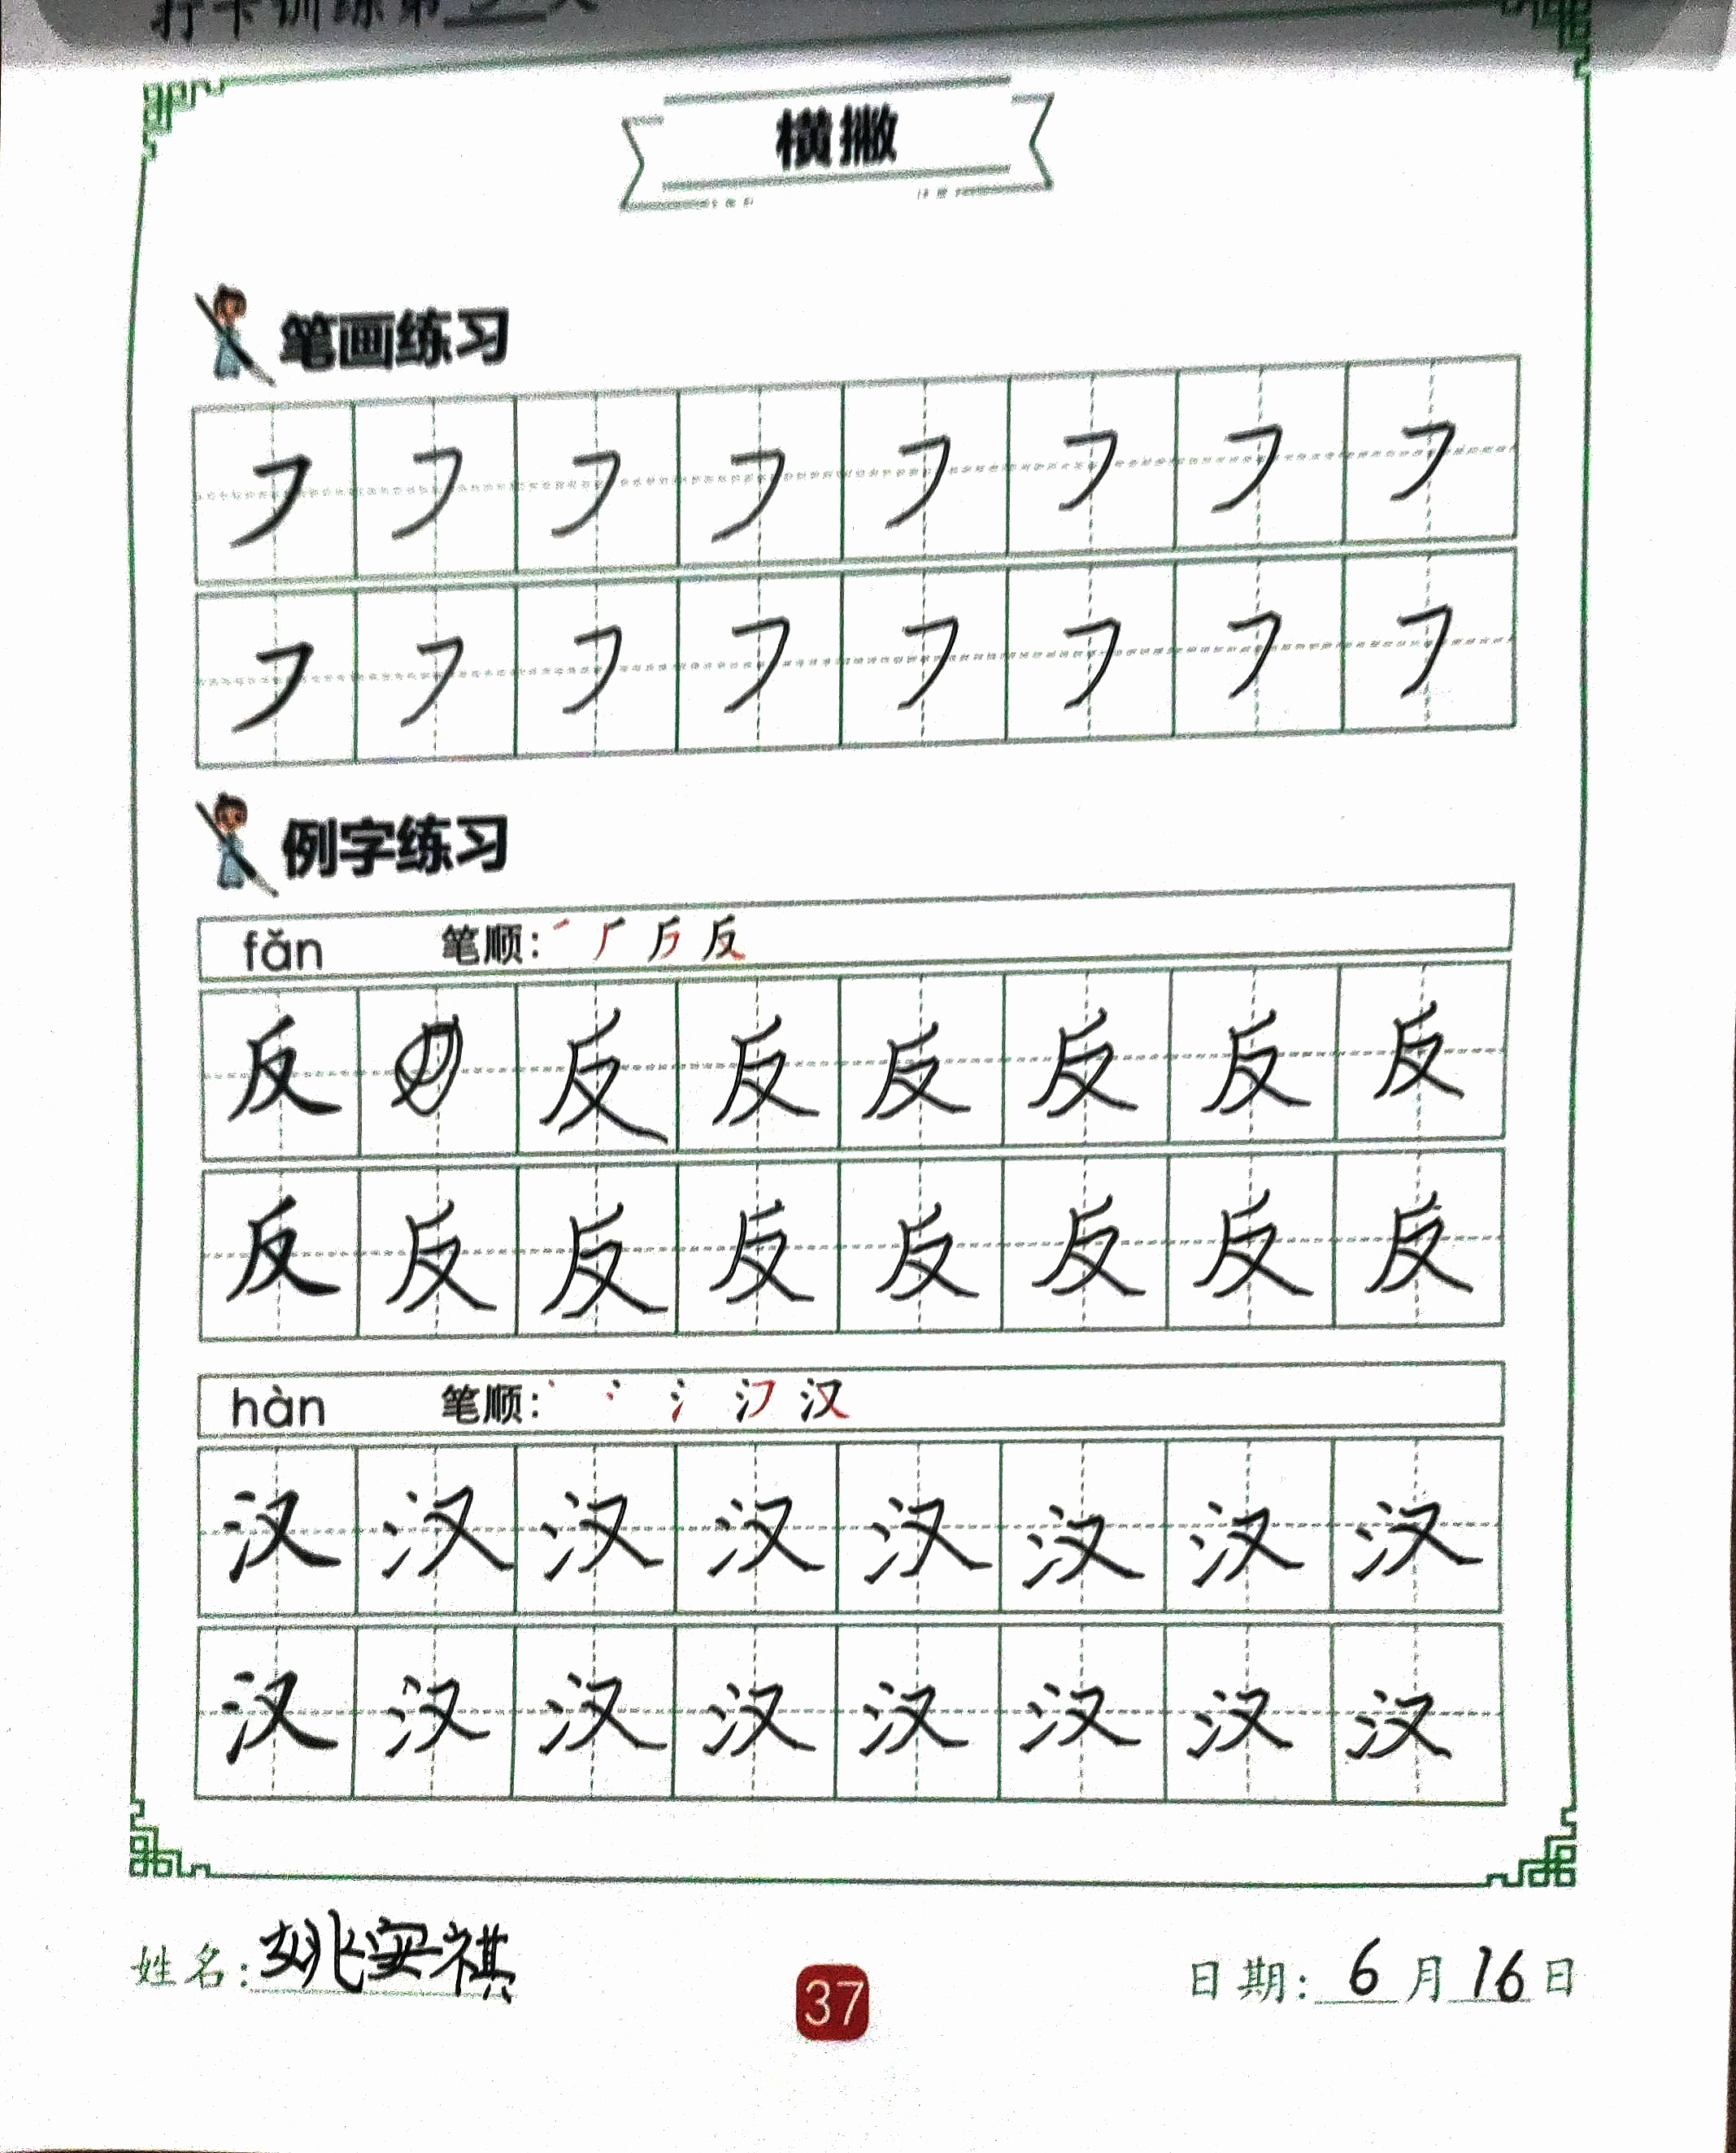 打卡训练第 天
横撇
笔画练习
㇇ ㇇ ㇇ ㇇ ㇇ ㇇ ㇇ ㇇
㇇ ㇇ ㇇ ㇇ ㇇ ㇇ ㇇ ㇇
例字练习
fǎn 笔顺: 反
反 反 反 反 反 反 反
反 反 反 反 反 反 反 反
hàn 笔顺: 汉
汉 汉 汉 汉 汉 汉 汉 汉
汉 汉 汉 汉 汉 汉 汉 汉
姓名: 姚安祺 37 日期: 6 月 16 日